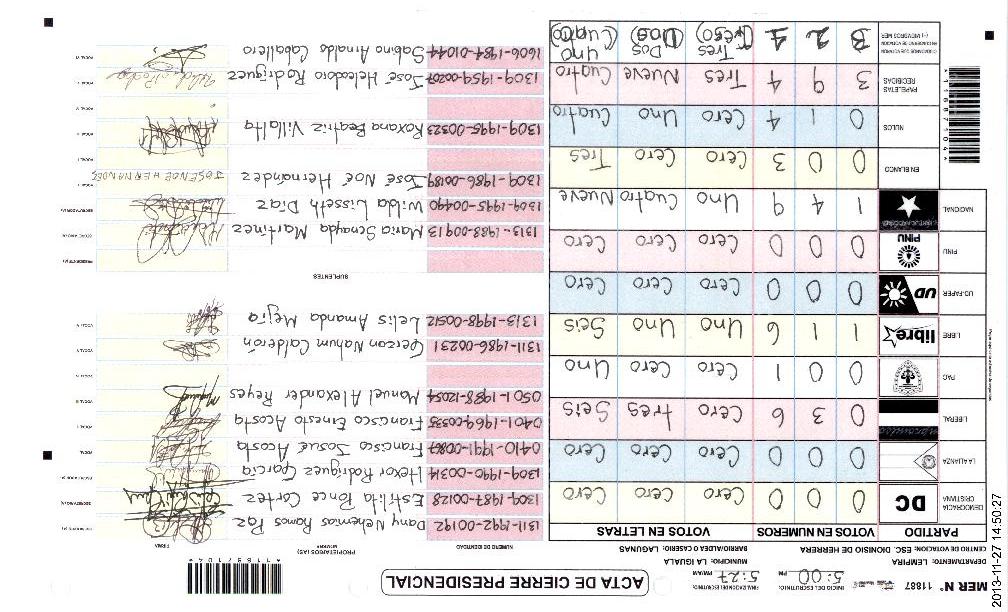 MER N° 11887
INICIO DEL ESCRUTINIO: 5:00 PM
FINALIZACION DEL ESCRUTINIO: 5:27 PM/AM
ACTA DE CIERRE PRESIDENCIAL
DEPARTAMENTO: LEMPIRA
MUNICIPIO: LA IGUALA
CENTRO DE VOTACION: ESC. DIONISIO DE HERRERA
BARRIO/ALDEA O CASERIO: LAGUNAS
PARTIDO VOTOS EN NUMEROS VOTOS EN LETRAS
DEMOCRACIA CRISTIANA DC 0 0 0 Cero Cero Cero
LA ALIANZA 0 0 0 Cero Cero Cero
LIBERAL 0 3 6 Cero tres Seis
PAC 0 0 1 Cero Cero Uno
LIBRE libre 1 1 6 Uno Uno Seis
UD-FAPER UD 0 0 0 Cero Cero Cero
PINU PINU 0 0 0 Cero Cero Cero
NACIONAL 1 4 9 Uno Cuatro Nueve
EN BLANCO 0 0 3 Cero Cero Tres
NULOS 0 1 4 Cero Uno Cuatro
PAPELETAS RECIBIDAS 3 9 4 Tres Nueve Cuatro
3 2 1 Tres Dos Uno
NUMERO DE IDENTIDAD PROPIETARIOS (AS) NOMBRE FIRMA
1311-1982-00192 Dany Nehemias Ramos Paz
1309-1987-00128 Estfilita Ponce Cortez
1309-1990-00314 Hexor Rodriguez Garcia
0410-1991-00867 Francisco Josué Acosta
0401-1969-00535 Francisco Ernesto Acosta
0501-1988-12054 Manuel Alexander Reyes
1311-1986-00231 Gerzon Nahum Calderón
1313-1998-00512 Lelis Amanda Mejia
SUPLENTES
1313-1988-00913 Maria Senayda Martinez
1309-1995-00490 Wilda Lisseth Diaz
1309-1986-00189 José Noé Hernández JOSE NOE HERNANDES
1309-1995-00323 Roxana Beatriz Villalta
1309-1959-00207 José Heleodoro Rodriguez
1606-1984-01044 Sabino Arnaldo Caballero
2013-11-27 14:50:27